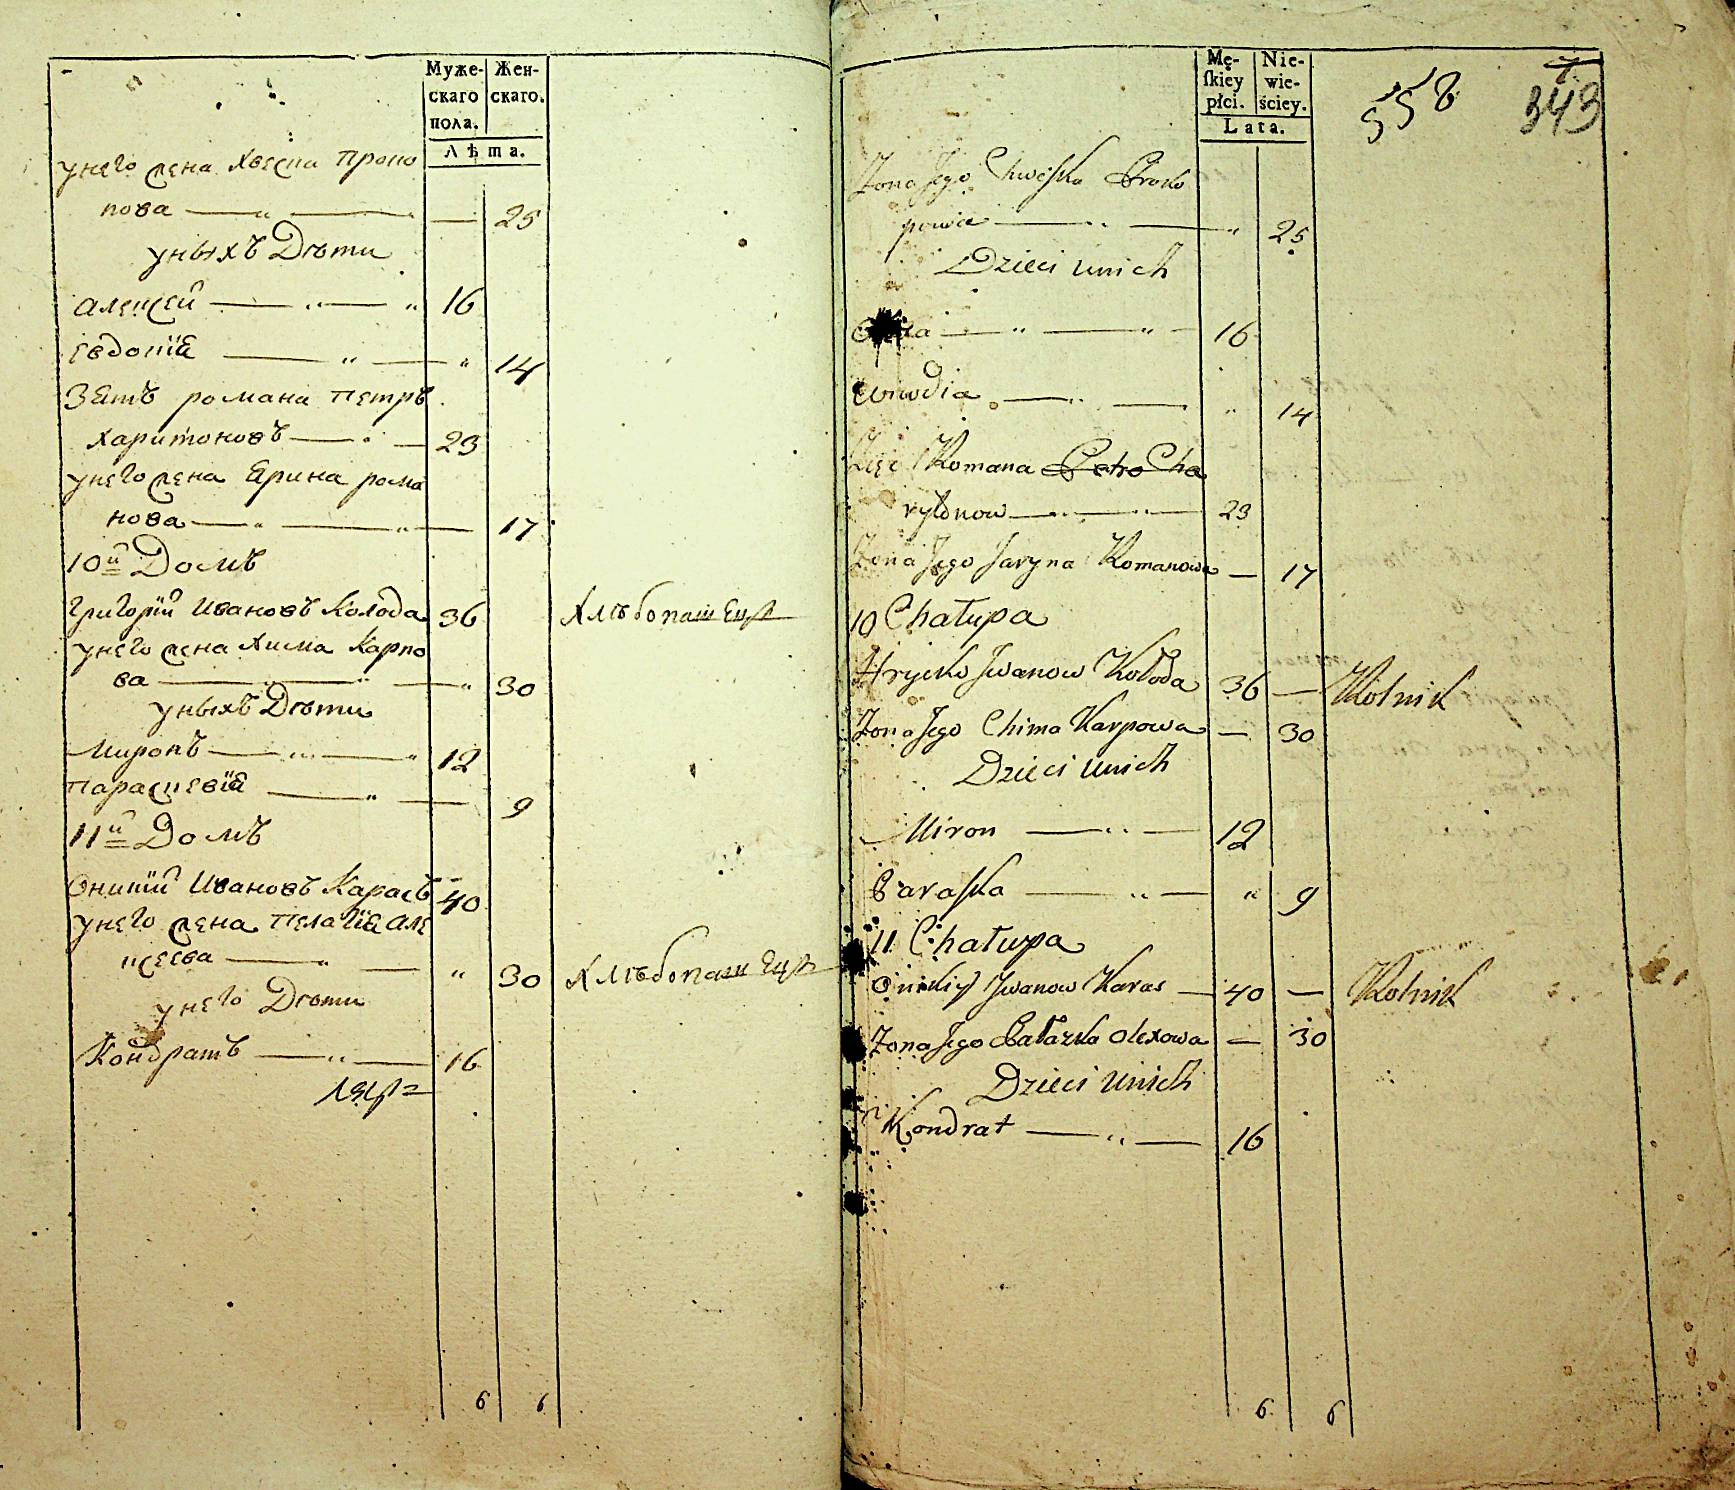 Муже-
скаго
пола.
Жен-
скаго.
Лѣта.
унего жена Хвеска Проко
пова — „ — — 25
уныхъ Дѣти
Алексей — „ — „ 16
Евдокія — „ — „ 14
Зять романа Петръ
Харитоновъ — „ — 23
унего жена Ярина рома
нова — „ — „ — 17
10й Домъ
Григорій Ивановъ Колода 36 Хлѣбопашецъ
унего жена Хима Карпо
ва — „ — „ — „ 30
уныхъ Дѣти
Миронъ — „ — „ 12
Параскевія — „ — 9
11й Домъ
Оникій Ивановъ Карась 40
унего жена Пелагія Але
ксеева — „ — „ 30 Хлѣбопашецъ
унего Дѣти
Кондратъ — „ — 16
6 6
Mę-
ſkiey
płci.
Nie-
wie-
ściey.
Lata.
558
343
Zona Jego Chweſka Proko
powa — „ — „ 25
Dzieci unich
— „ — „ — 16
Ewdia — „ — „ 14
Zięć Romana Petro Cha
rytonow — „ — „ — 23
Zona Jego Jaryna Romanowa — 17
10 Chałupa
Hrycko Jwanow Kołoda 36 — Rolnik
Zona Jego Chima Karpowa — 30
Dzieci unich
Miron — „ — 12
Paraſka — „ — „ 9
11 Chałupa
Onikiy Jwanow Karas — 40 — Rolnik
Zona Jego Pałazka Olexowa — 30
Dzieci unich
Kondrat — „ — 16
6 6